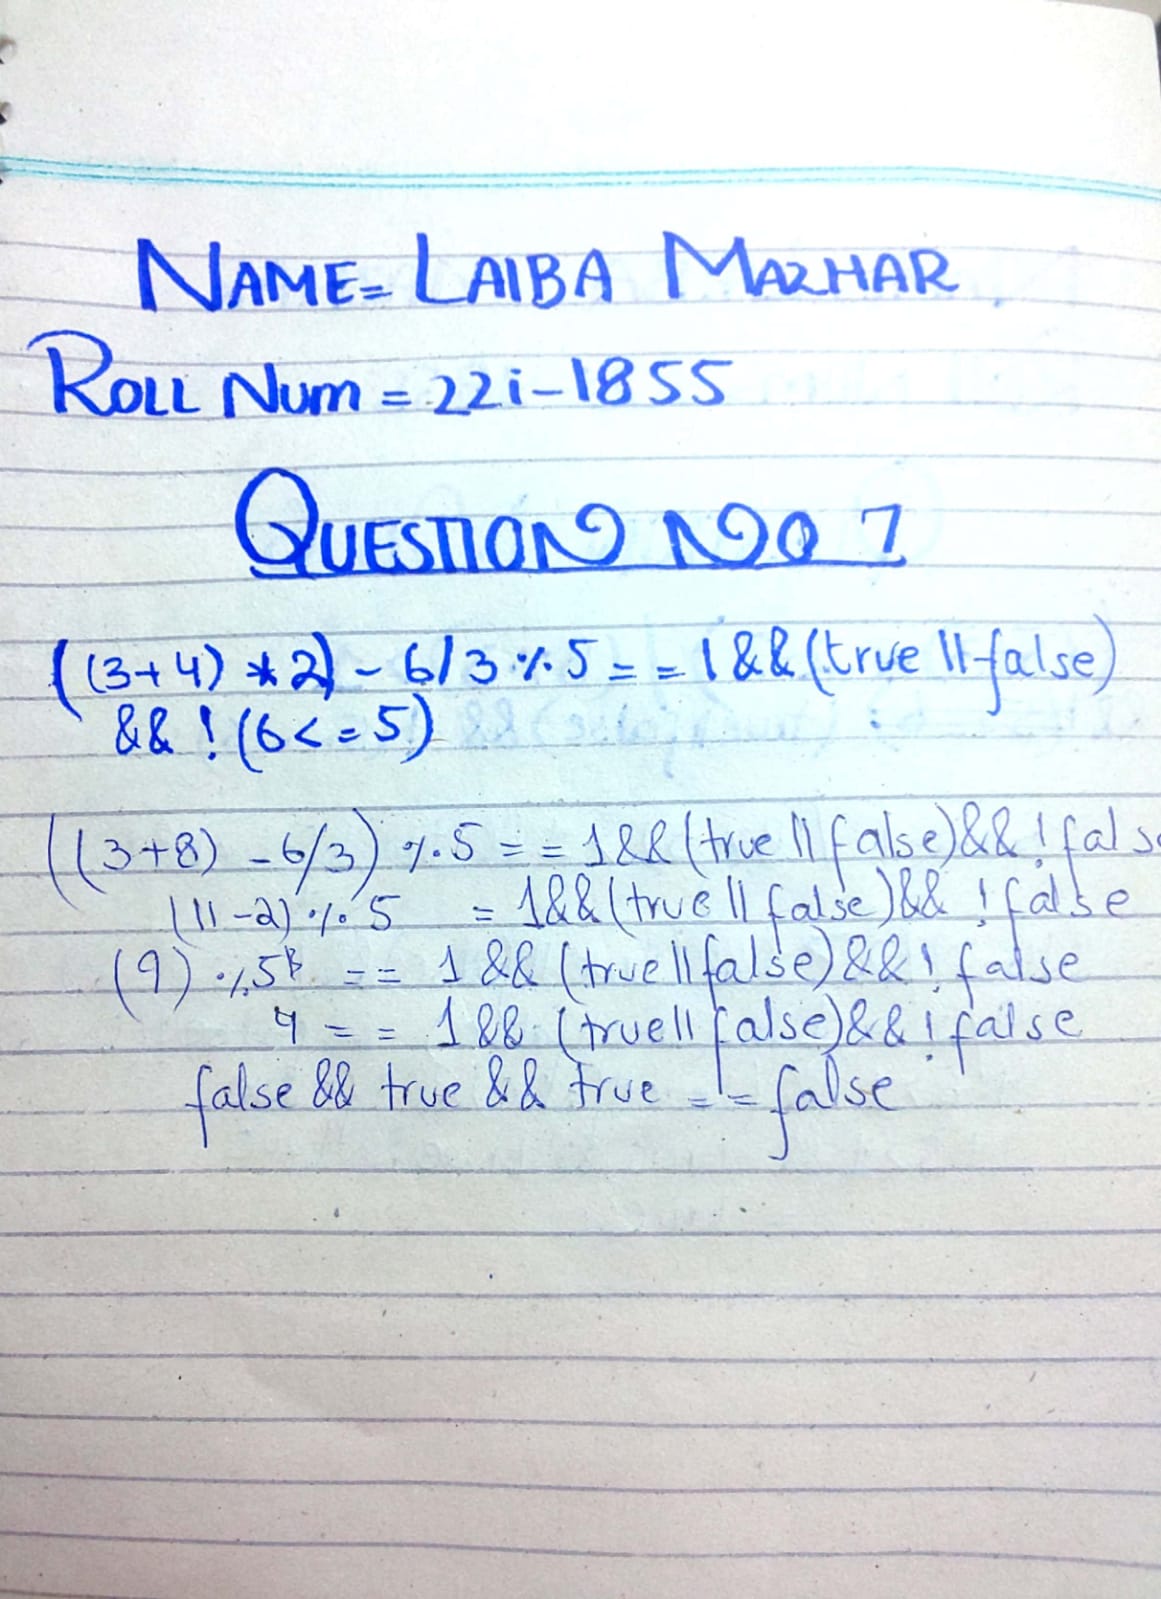 NAME= LAIBA MAZHAR
ROLL NUM = 22i-1855
QUESTION NO 1
((3+4) * 2) - 6/3 % 5 = = 1 && (true || false)
&& ! (6 < = 5)
((3+8) - 6/3) % 5 = = 1 && (true || false) && ! false
(11 - 2) % 5 = 1 && (true || false) && ! false
(9) % 5 == 1 && (true || false) && ! false
4 = = 1 && (true || false) && ! false
false && true && true = = false